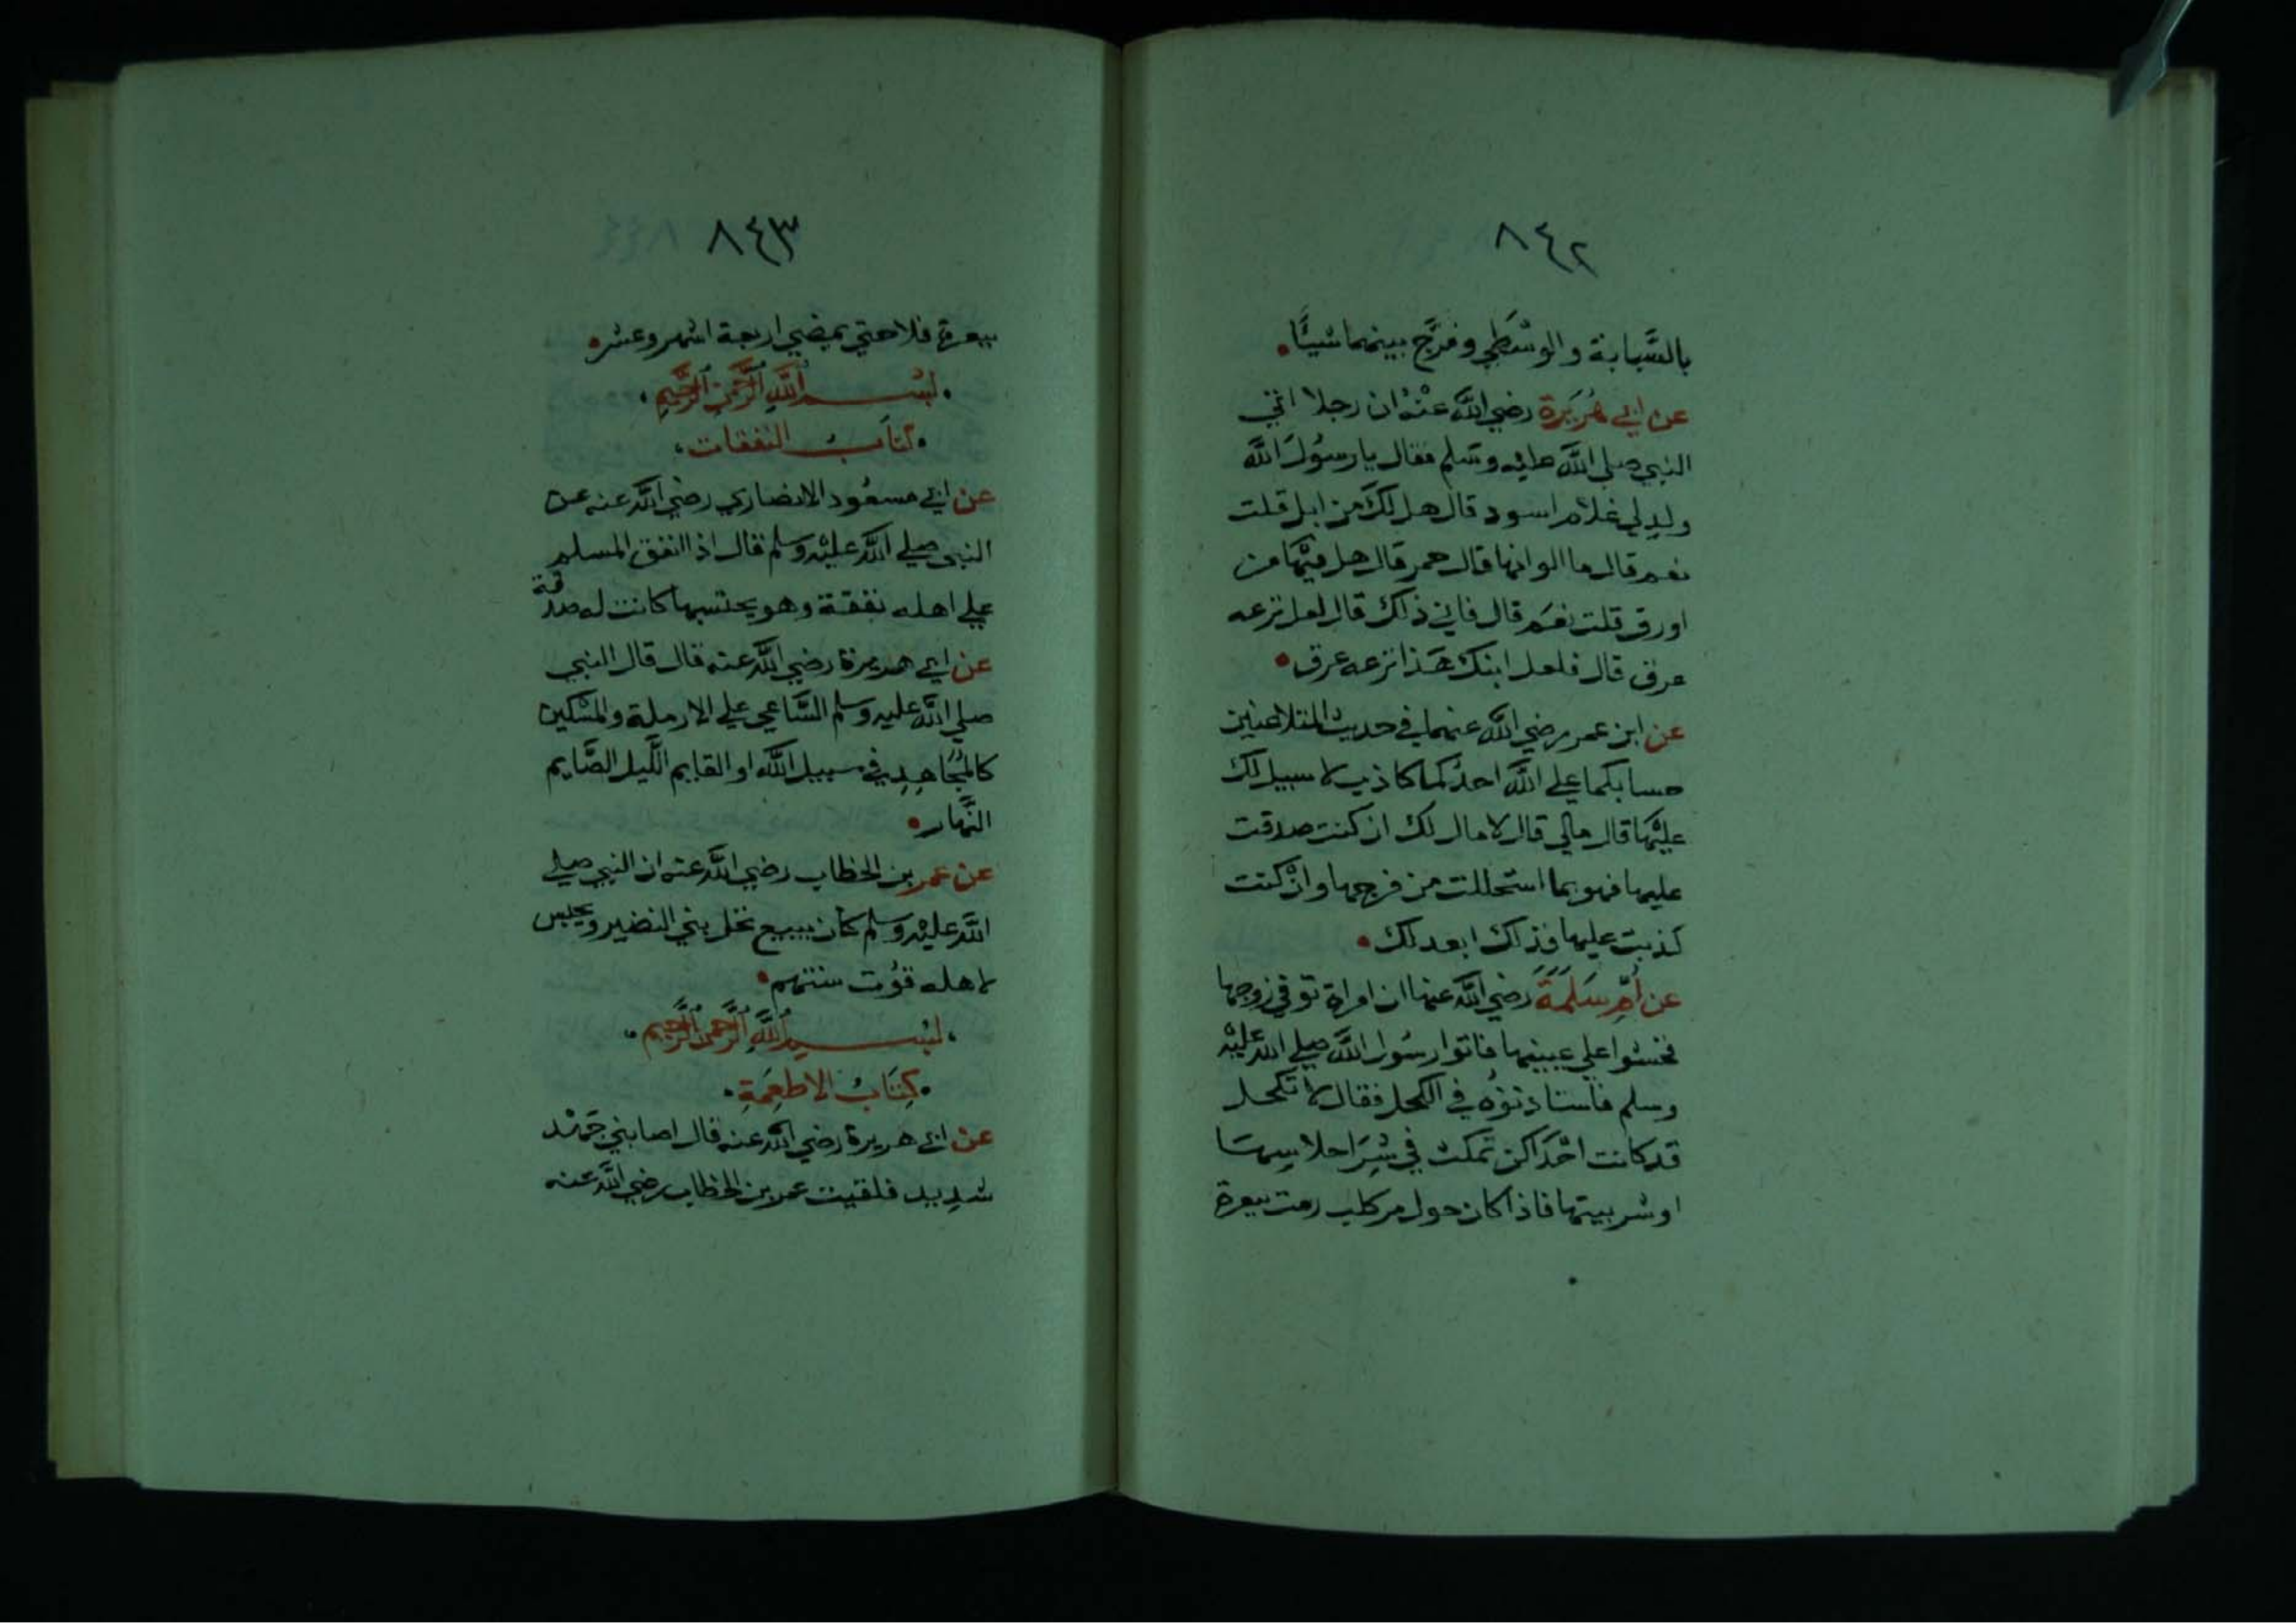 ٨٤٢
بالسَّبابة والوسْطَي وفرَّج بينهما شيئًا
عن ابي هُرَيرة رضي الله عنْهُ ان رجلا اتي
النبي صلي الله عليه وسلم فقال يا رسُولَ اللَّه
ولد لي غلام اسود قال هل لك من ابل قلت
نعم قال ما الوانها قال حمر قال هل فيْها من
اورق قلت نعَم قال فاني ذلك قال لعل نزعه
عرق قال فلعل ابنك هَذا نزعه عرق
عن ابن عمر رضي الله عنهما في حديث المتلاعنين
حسابكما علي اللَّه احدُكما كاذب لا سبيل لك
عليْها قال مالي قال لا مال لك ان كنت صدقت
عليها فهو بما استحللت من فرجها وانْ كنت
كذبت عليها فذلك ابعد لك
عن أمِّ سَلَمَةَ رضي الله عنها ان امراة توفي زوجها
فخشوا علي عينيها فاتوا رسُول اللَّه صلي الله عليْه
وسلم فاستاذنوُه في الكحل فقال لا تكحل
قد كانت احْدَاكن تمكث في شَرِّ احلاسِهَا
او شر بيتها فاذا كان حول مر كلب رمت ببعرة
٨٤٣
ببعرة فلا حتي يمضي اربعة اشهر وعشر
بسْم اللَّهِ الرَّحمن الرَّحِيمِ
كتابُ النفقات
عن ابي مسعُود الانصاري رضي اللَّه عنه عن
النبي صلي اللَّه عليْه وسلم قال اذا انفق المسلم
علي اهله نفقة وهو يحتسبها كانت له صدقة
عن ابي هريرة رضي اللَّه عنه قال قال النبي
صلي اللَّه عليه وسلم السَّاعي علي الارملة والمسْكين
كالمُجَاهِدِ في سبيل اللَّه او القايم اللَّيل الصَّايم
النَّهار
عن عمر بن الخطاب رضي اللَّه عنه ان النبي صلي
اللَّه عليْه وسلم كان يبيع نخل بني النضير ويحبس
لاهله قوُت سنتهم
بسْم اللَّهِ الرَّحمن الرَّحِيم
كِتَابُ الاطعِمَةِ
عن ابي هريرة رضي اللَّه عنه قال اصابني جَهْد
شدِيد فلقيت عمر بن الخطاب رضي اللَّه عنه